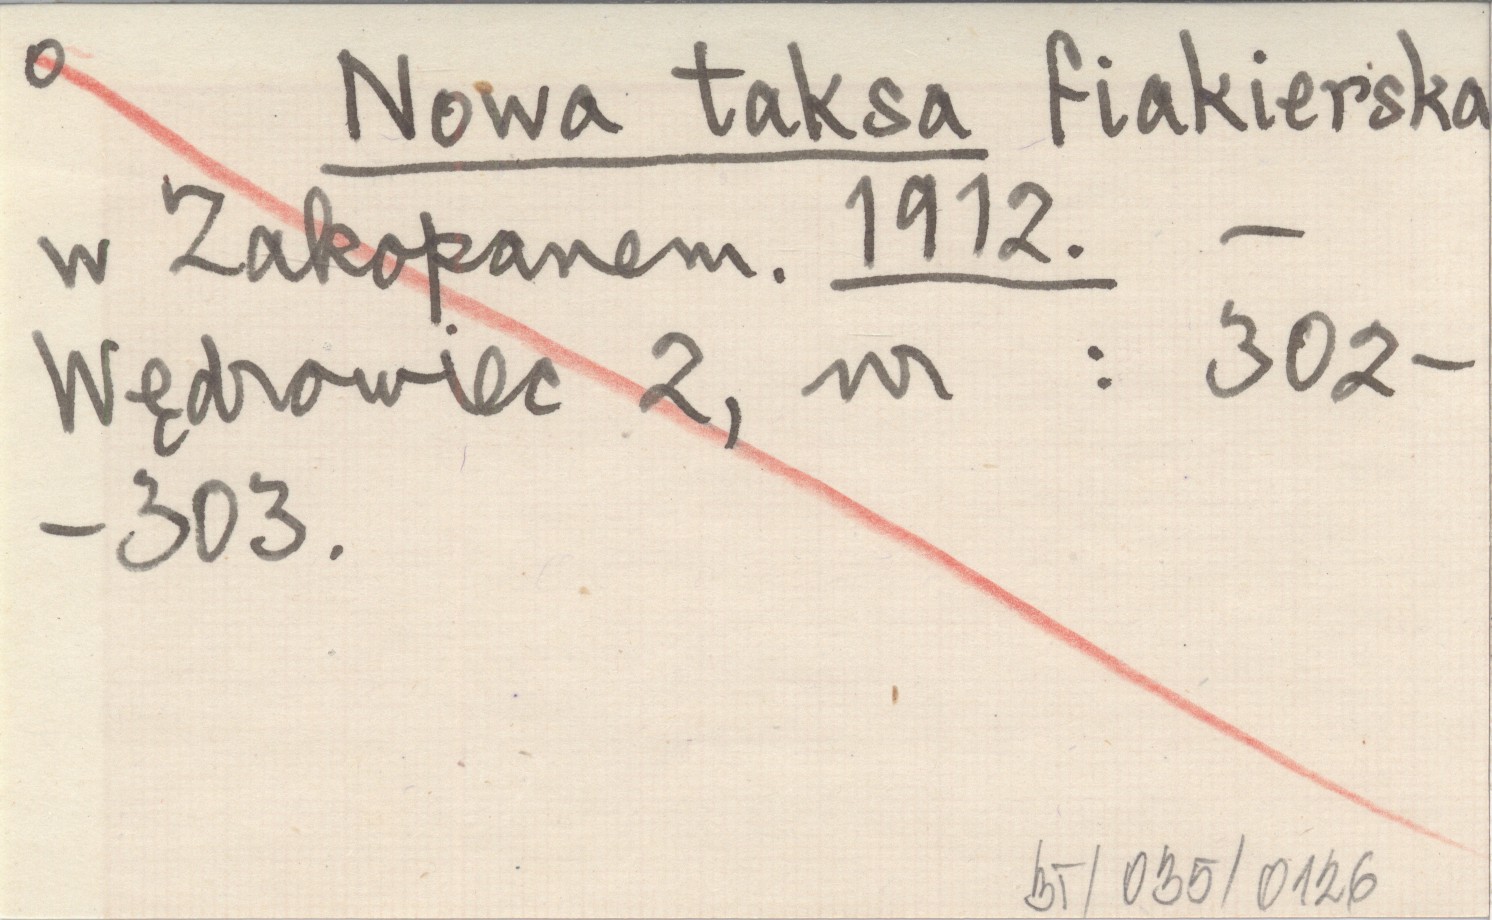 o Nowa taksa fiakierska
w Zakopanem. 1912. –
Wędrowiec 2, nr : 302–
–303.
BT/035/0126